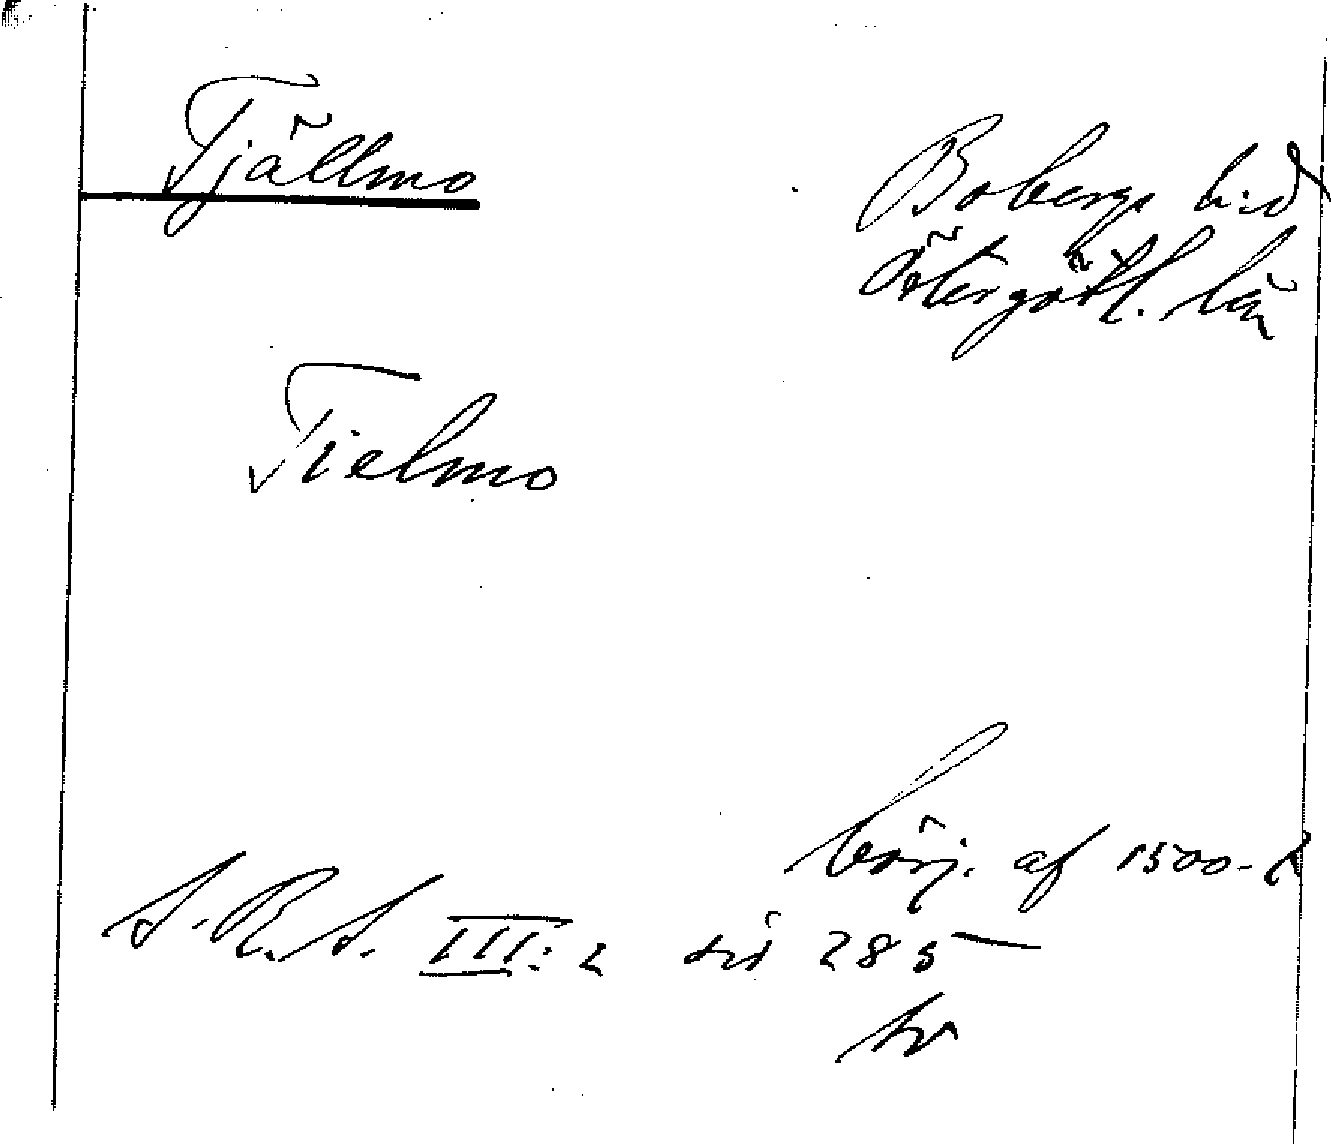 Tjällmo
Bobergs h:d
Östergötl. län
Tielmo
börj. af 1500-t
S. R. S. III: 2 sid 285
tr